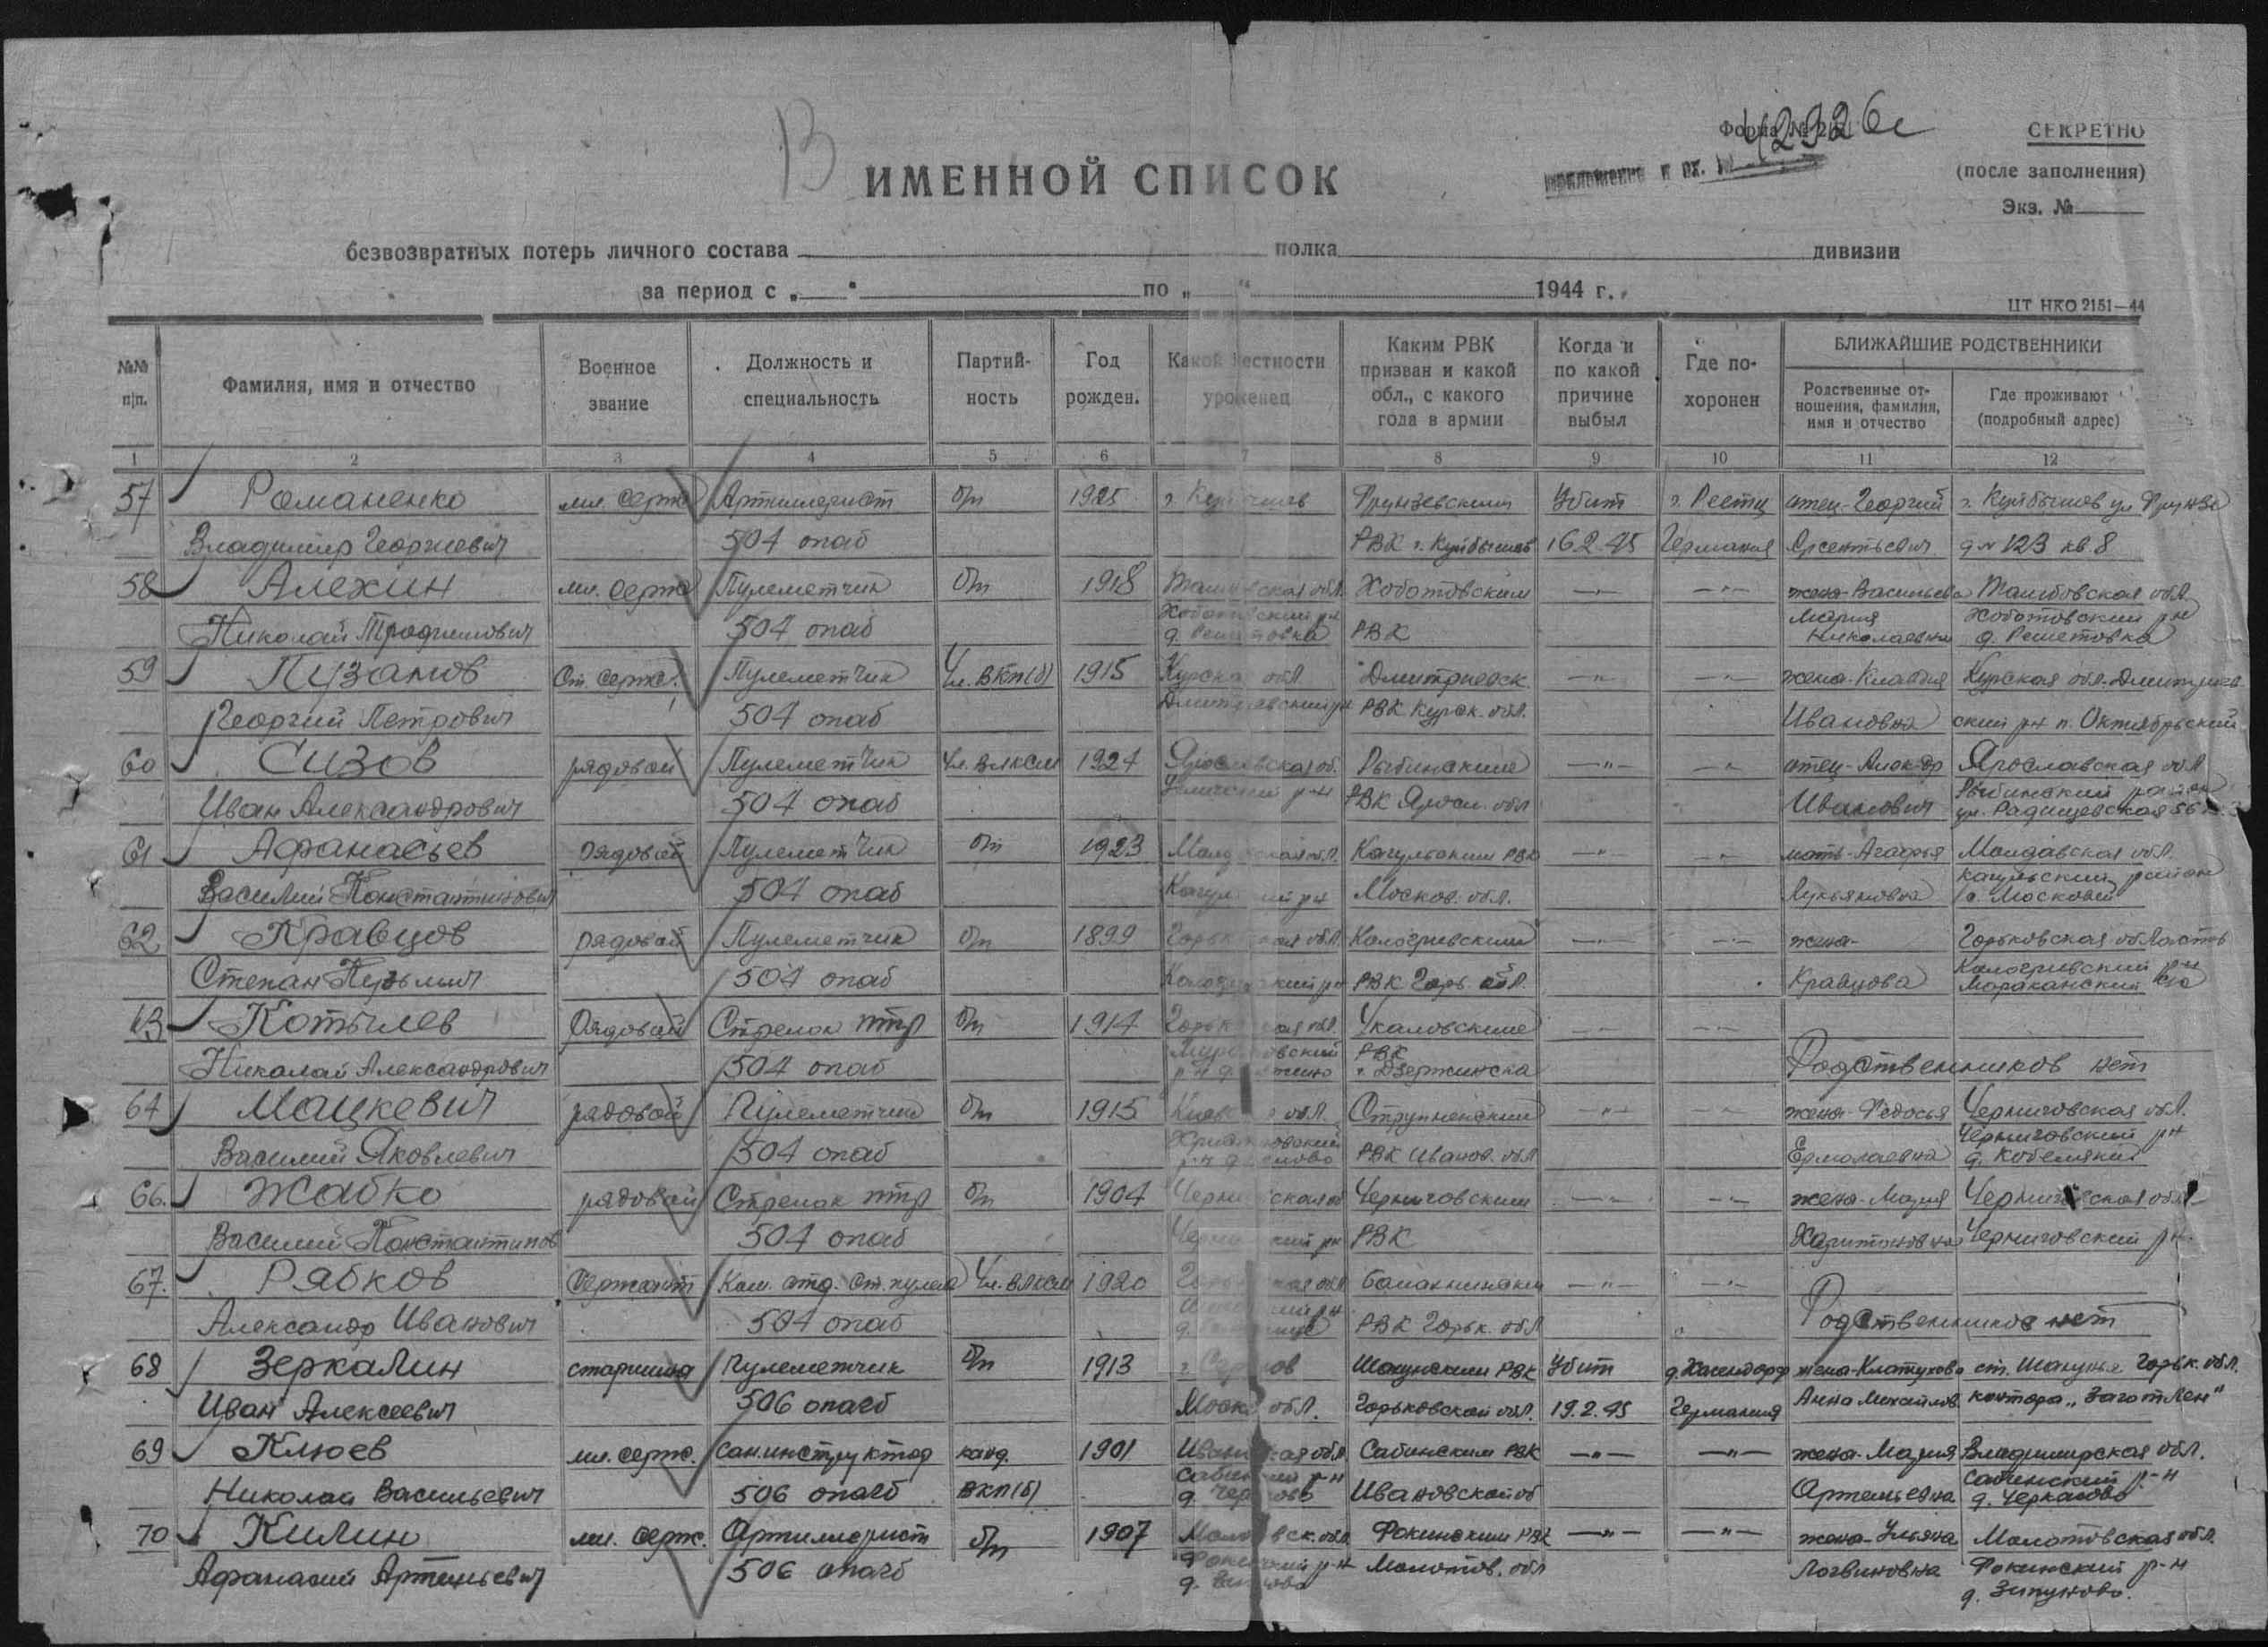 В
Форма № 2
42326с
СЕКРЕТНО
ИМЕННОЙ СПИСОК
(после заполнения)
Экз. №
безвозвратных потерь личного состава полка дивизии
за период с „ " по „ " 1944 г.
ЦТ НКО 2151—44
№№ п|п. Фамилия, имя и отчество Военное звание Должность и специальность Партий-ность Год рожден. Какой местности уроженец Каким РВК призван и какой обл., с какого года в армии Когда и по какой причине выбыл Где по-хоронен БЛИЖАЙШИЕ РОДСТВЕННИКИ
Родственные от-ношения, фамилия, имя и отчество Где проживают (подробный адрес)
1 2 3 4 5 6 7 8 9 10 11 12
57 Романенко мл. серж Артиллерист б/п 1925 г. Куйбышев Фрунзевским Убит г. Реетц отец-Георгий г. Куйбышев ул Фрунзе
Владимир Георгиевич 504 опаб РВК г. Куйбышев 16.2.45 Германия Арсентьевич д № 123 кв. 8
58 Алехин мл. серж Пулеметчик б/п 1918 Тамбовская обл. Хоботовским —"— —"— жена-Васильева Тамбовская обл.
Хоботовский рн Мария Хоботовский рн
Николай Трофимович 504 опаб д. Решетовка РВК Николаевна д. Решетовка
59 Пузанов Ст. серж. Пулеметчик Чл. ВКП(б) 1915 Курская обл Дмитриевск —"— —"— жена-Клавдия Курская обл. Дмитриев-
Георгий Петрович 504 опаб Дмитриевский рн РВК Курск. обл. Ивановна ский рн п. Октябрьский
60 Сизов рядовой Пулеметчик Чл. ВЛКСМ 1924 Ярославская об. Рыбинским —"— —"— отец-Алек-др Ярославская обл
Угличский р-н Рыбинский район
Иван Александрович 504 опаб РВК Яросл. обл Иванович ул. Радищевская 56
61 Афанасьев рядовой Пулеметчик б/п 1923 Молд обл. Кагульским РВК —"— —"— мать-Агафья Молдавская обл.
Кагульский район
Василий Константинович 504 опаб Кагул рн Москов. обл. Лукьяновна с. Московей
62 Кравцов рядовой Пулеметчик б/п 1899 Горьк обл. Кологривским —"— —"— жена- Горьковская область
Кологривский рн
Степан Кузьмич 504 опаб рн РВК Горь. обл. Кравцова Мараканский с/с
63 Котылев рядовой Стрелок птр б/п 1914 Горьк обл. Чкаловским —"— —"—
РВК
Николай Александрович 504 опаб г. Дзержинска Родственников нет
64 Мацкевич рядовой Пулеметчик б/п 1915 Киевск обл. Струнненский —"— —"— жена-Федосья Черниговская обл.
Черниговский рн
Василий Яковлевич 504 опаб РВК Иванов. обл Ермолаевна д. Кобеляки
66. Жабко рядовой Стрелок птр б/п 1904 Черниговская об Черниговским —"— —"— жена-Мария Черниговская обл.
Василий Константинов 504 опаб рн РВК Харитоновна Черниговский рн.
67. Рябков Сержант Ком. отд. ст. пулем Чл. ВЛКСМ 1920 Горьк обл Балахнинским —"— —"—
Александр Иванович 504 опаб РВК Горьк. обл Родственников нет
68 Зеркалин старшина Пулеметчик б/п 1913 г. Шахунским РВК Убит д. Хасендорф жена-Клатухова ст. Шахунья Горьк. обл.
Иван Алексеевич 506 опаб Моск обл. Горьковской обл. 19.2.45 Германия Анна Михайлов контора „Заготлен"
69 Клюев мл. серж. Сан.инструктор канд. 1901 Ивановская обл Сабинским РВК —"— —"— жена-Мария Владимирская обл.
р-н Сабинский р-н
Николай Васильевич 506 опаб ВКП(б) д. Ивановской об Артемьевна д. Черкасово
70 Килин мл. серж. Артиллерист б/п 1907 Молотовск. обл. Фокинским РВК —"— —"— жена-Ульяна Молотовская обл.
Афанасий Артемьевич 506 опаб Фокинский р-н Молотов. обл Логвиновна Фокинский р-н
д. д. Зипуново.